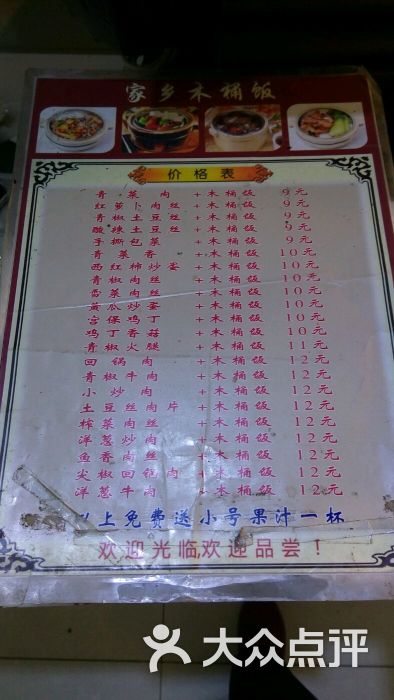 家乡木桶饭
价格表
青菜肉+木桶饭 9元
红萝卜肉丝+木桶饭 9元
青椒土豆丝+木桶饭 9元
酸辣土豆丝+木桶饭 9元
手撕包菜+木桶饭 9元
青菜香+木桶饭 10元
西红柿炒蛋+木桶饭 10元
青椒肉丝+木桶饭 10元
雪菜肉丝+木桶饭 10元
黄瓜炒蛋+木桶饭 10元
宫保鸡丁+木桶饭 10元
鸡丁香菇+木桶饭 10元
青椒火腿+木桶饭 11元
回锅肉+木桶饭 12元
青椒牛肉+木桶饭 12元
小炒肉+木桶饭 12元
土豆丝肉片+木桶饭 12元
榨菜肉丝+木桶饭 12元
洋葱炒肉+木桶饭 12元
鱼香肉丝+木桶饭 12元
尖椒回锅肉+木桶饭 12元
洋葱牛肉+木桶饭 12元
以上免费送小号果汁一杯
欢迎光临欢迎品尝！
大众点评